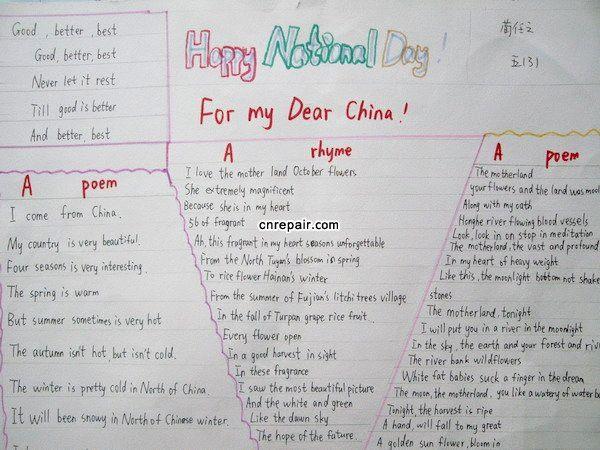 Good, better, best
Good, better, best
Never let it rest
Till good is better
And better, best
Happy National Day!
For my Dear China!
五131
A poem
I come from China.
My country is very beautiful.
Four seasons is very interesting.
The spring is warm
But summer sometimes is very hot
The autumn isn't hot, but isn't cold.
The winter is pretty cold in North of China.
It will been snowy in North of Chinese winter.
A rhyme
I love the mother land October flowers
She extremely magnificent
Because she is in my heart
56 of fragrant
cnrepair.com
Ah, this fragrant in my heart seasons unforgettable
From the North Tuyan's blossom in spring
To rice flower Hainan's winter
From the summer of Fujian's litchi trees village
In the fall of Turpan grape rice fruit
Every flower open
In a good harvest in sight
In these fragrance
I saw the most beautiful picture
And the white and green
Like the dawn sky
The hope of the future...
A poem
The motherland
your flowers and the land was mool
Along with my oath
Honghe river flowing blood vessels
Look, look in on stop in meditation
The motherland, the vast and profound
In my heart of heavy weight
Like this, the moonlight bottom not shake
stones
The motherland, tonight
I will put you in a river in the moonlight
In the sky, the earth and your forest and riv
The river bank wildflowers
White fat babies suck a finger in the dream
The moon, the motherland, you like a watery of water b
Tonight, the harvest is ripe
A hand, will fall to my great
A golden sun flower, bloom in